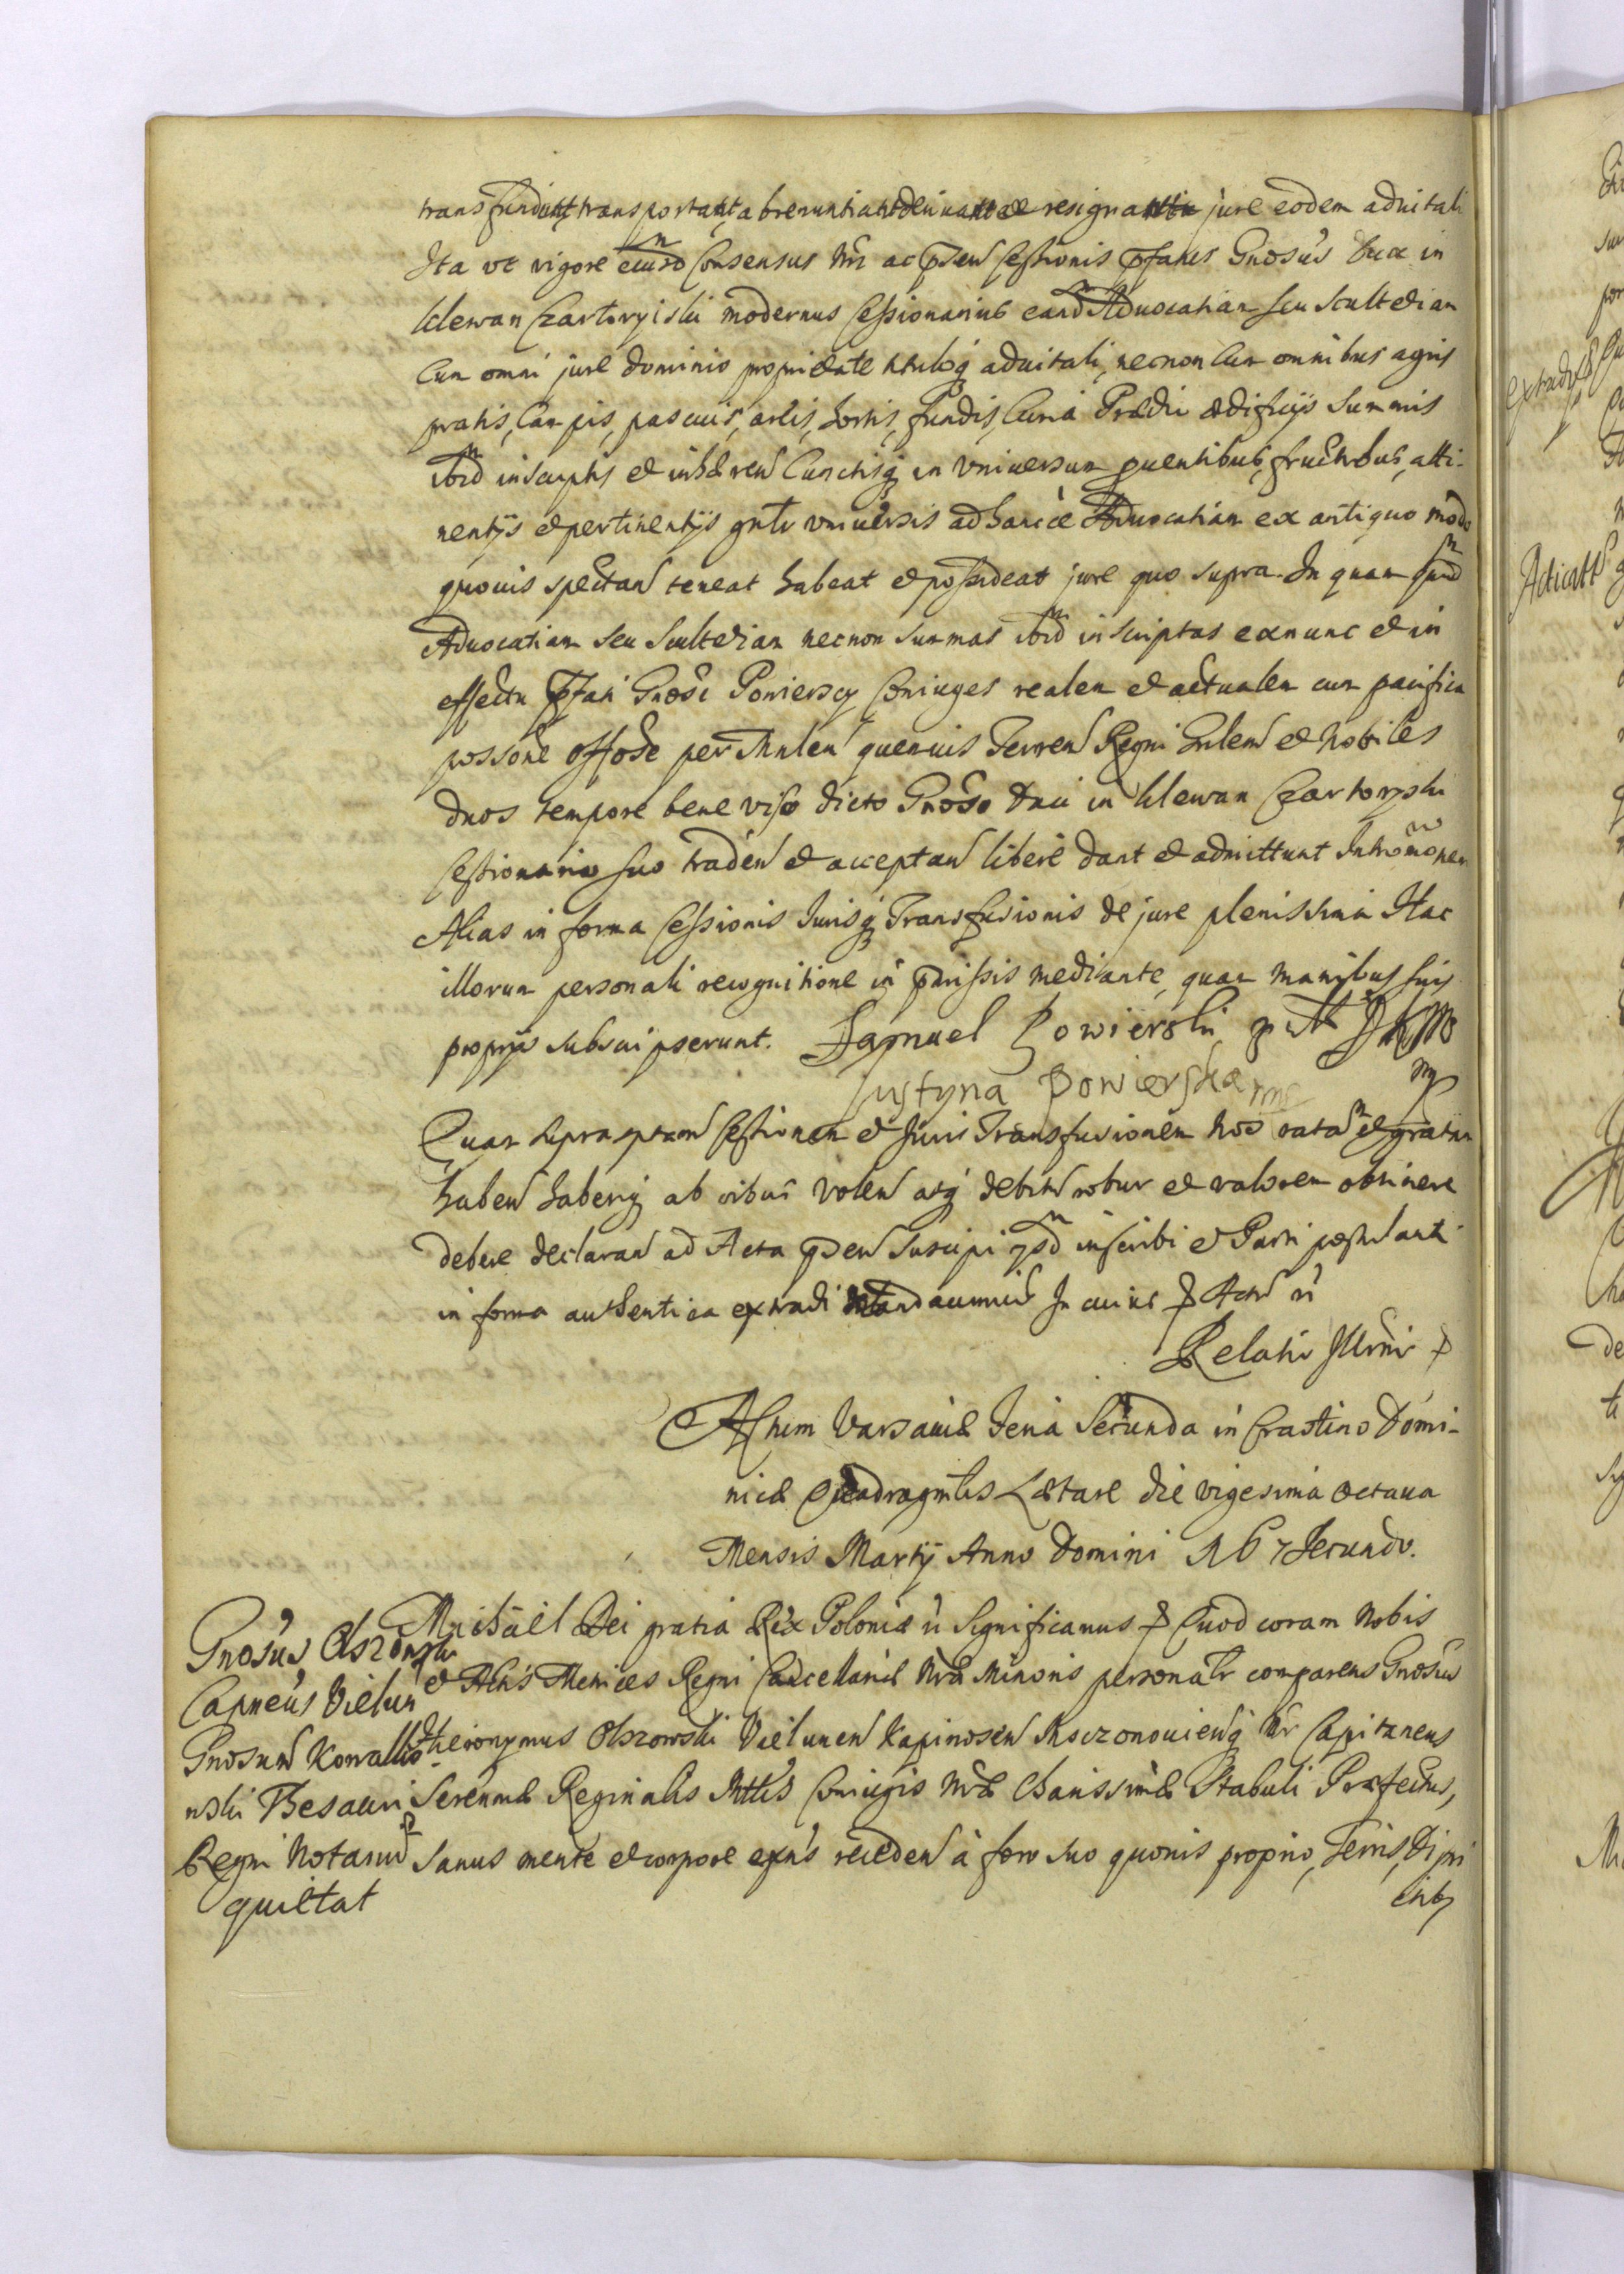 transfundunt, transportant, abrenuntiant deriuant et resignant jure eodem aduitali
Ita ut vigore eiusd Consensus Nri ac psen Cessionis pfatus Gnosus Dux in
Klewan Czartoryiski modernus Cessionarius eand Aduocatiam seu Scultetiam
Cum omni jure dominio proprietate tituloq aduitali, necnon Cum omnibus agris
pratis, Campis, pascuis, areis, hortis, fundis, Curia Prædii ædificijs Summis
ibid inscriptis et inhæren Cunctisq in vniuersum prouentibus, fructibus, atti-
nentijs et pertinentijs gnlr vniuersis ad hancce Aduocatiam ex antiquo modo
quouis spectan teneat habeat et possideat jure quo supra. In quam quid
Aduocatiam seu Scultetiam necnon Summas ibid inscriptas exnunc et in
effectu pfati Gnosi Powierscy Coniuges realem et actualem cum pacifica
possone offose per Mnlem quemuis Terren Regni Gnlem et Nobiles
duos tempore bene viso dicto Gnoso Duci in Klewan Czartoryski
Cessionario suo traden et acceptan libere dant et admittunt Intromonem
Alias in forma Cessionis Jurisq Transfusionis de jure plenissima Hac
illorum personali recognitione in pmissis mediante, quam manibus suis
proprijs subscripserunt. Samuel Powierski
Justyna Powierska mp
Quam supra sptam Cessionem et Juris Transfusionem nos ratam et gratam
haben haberiq ab oibus volen atq debitu robur et valorem obtinere
debere declaran ad Acta psen suscipi ibid inscribi et Parti postulanti
in forma authentica extradi mandauimus In cuius p Actu
Relatio Illrmi p
Actum Varsauiæ Feria Secunda in Crastino Domi-
nicæ Quadragmlis Lætare die vigesima octaua
Mensis Martij Anno Domini 167 Secundo.
Gnosus Olszowski
Capneus Vielun
Gnosum Kowalko-
wski Thesauri
Regni Notarium
quietat
Michaël Dei gratia Rex Poloniæ Significamus p Quod coram Nobis
et Actis Metrices Regni Cancellariæ Nræ Minoris personalr comparens Gnosus
Hieronymus Olszowski Vielunen Kapinosen Moczonouienq Nr Capitaneus
Serenmæ Reginalis Mttis Coniugis Nræ Charissimæ Stabuli Præfectus,
Sanus mente et corpore exns receden à foro suo quouis proprio, Terris, Distri
ctibq